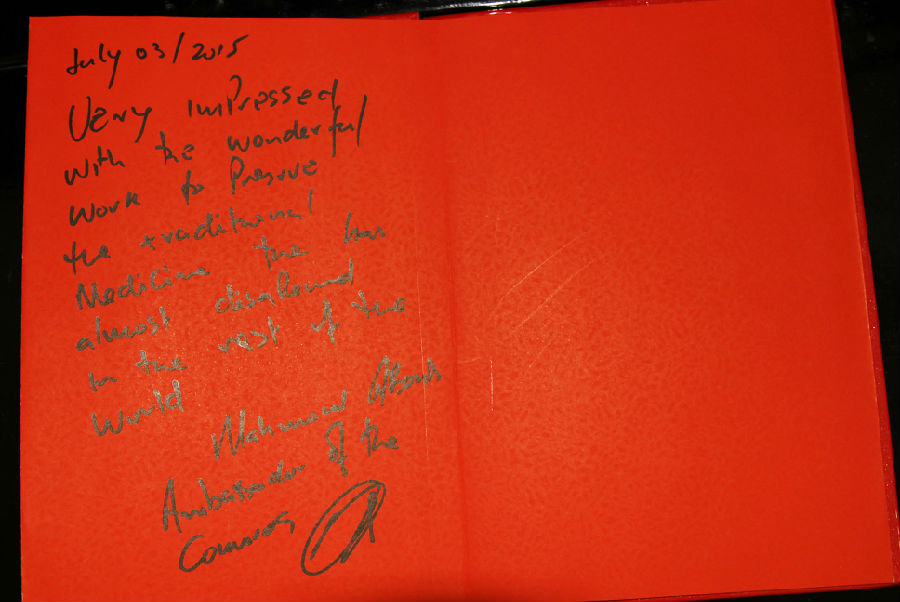 July 03/2015
Very impressed
with the wonderful
work to Preserve
the traditional
Medicine the has
almost disappeared
in the rest of the
World
Mahmoud Aboud
Ambassador of the
Comoros